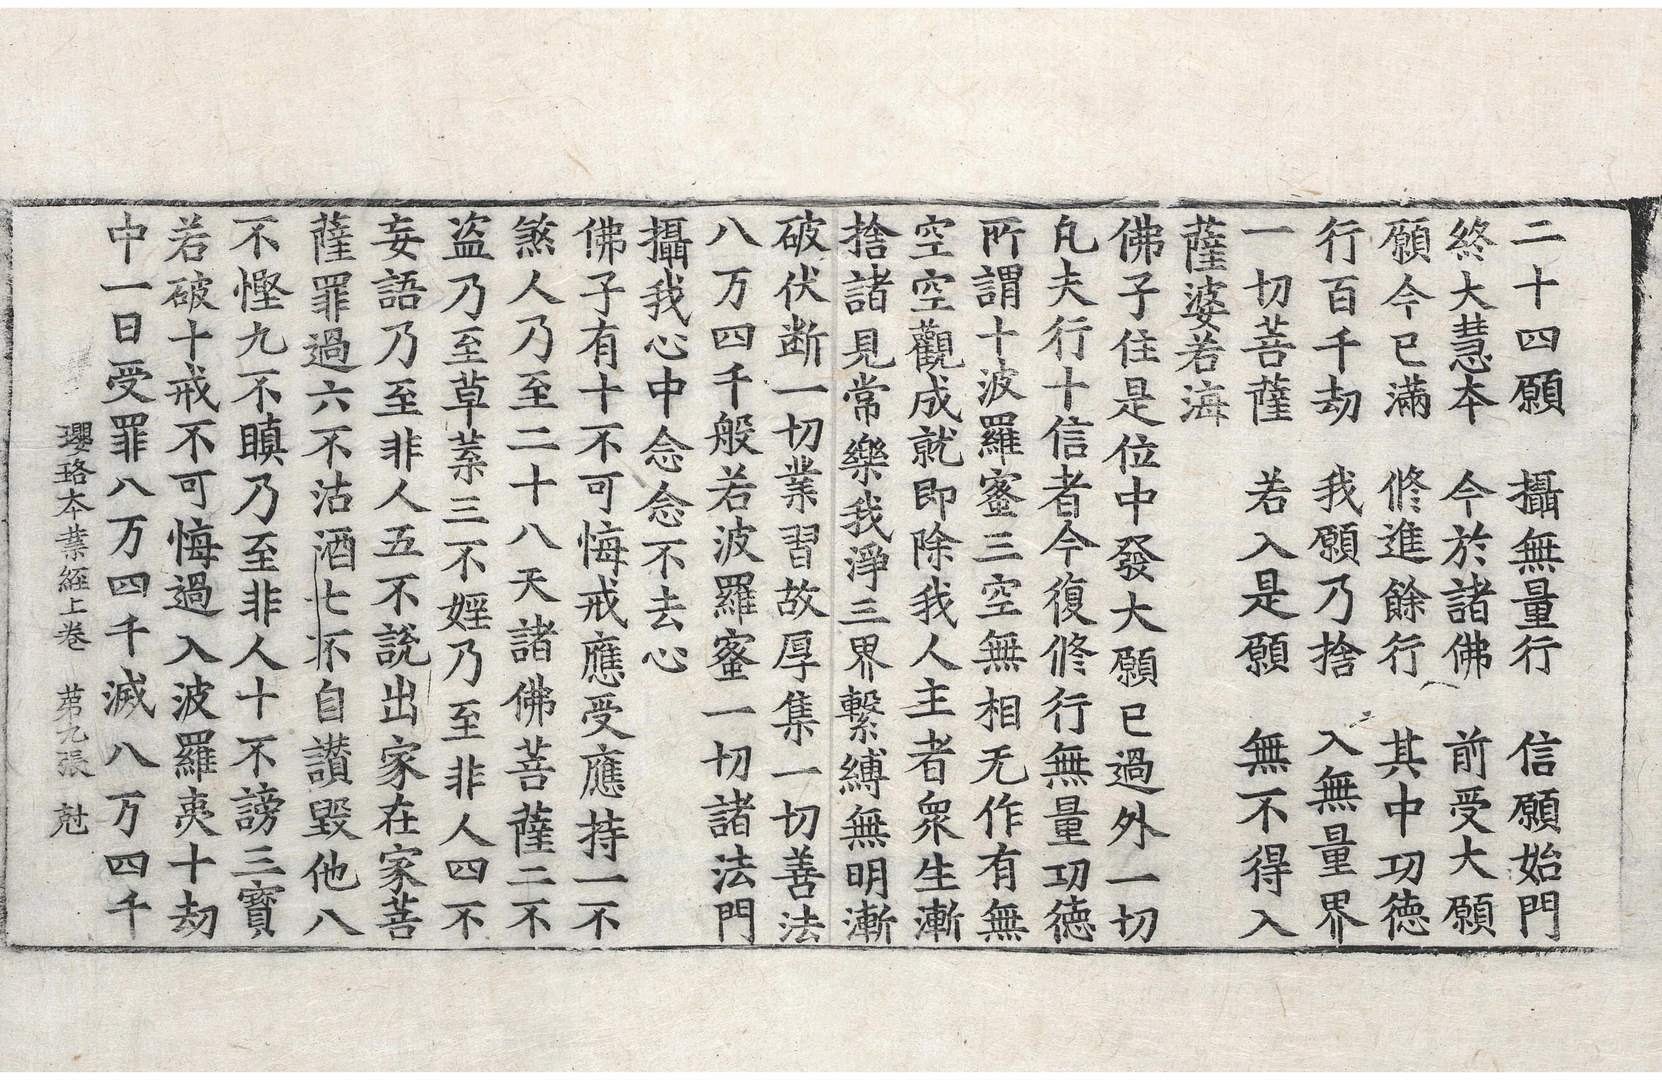 二十四願　攝無量行　信願始門
終大慧本　今於諸佛　前受大願
願今已滿　修進餘行　其中功德
行百千劫　我願乃捨　入無量界
一切菩薩　若入是願　無不得入
薩婆若海
佛子住是位中發大願已過外一切
凡夫行十信者今復修行無量功德
所謂十波羅蜜三空無相无作有無
空空觀成就即除我人主者衆生漸
捨諸見常樂我淨三界繫縛無明漸
破伏断一切業習故厚集一切善法
八万四千般若波羅蜜一切諸法門
攝我心中念念不去心
佛子有十不可悔戒應受應持一不
煞人乃至二十八天諸佛菩薩二不
盗乃至草葉三不婬乃至非人四不
妄語乃至非人五不說出家在家菩
薩罪過六不沽酒七不自讃毀他八
不慳九不瞋乃至非人十不謗三寶
若破十戒不可悔過入波羅夷十劫
中一日受罪八万四千滅八万四千
瓔珞本業經上卷　第九張　尅